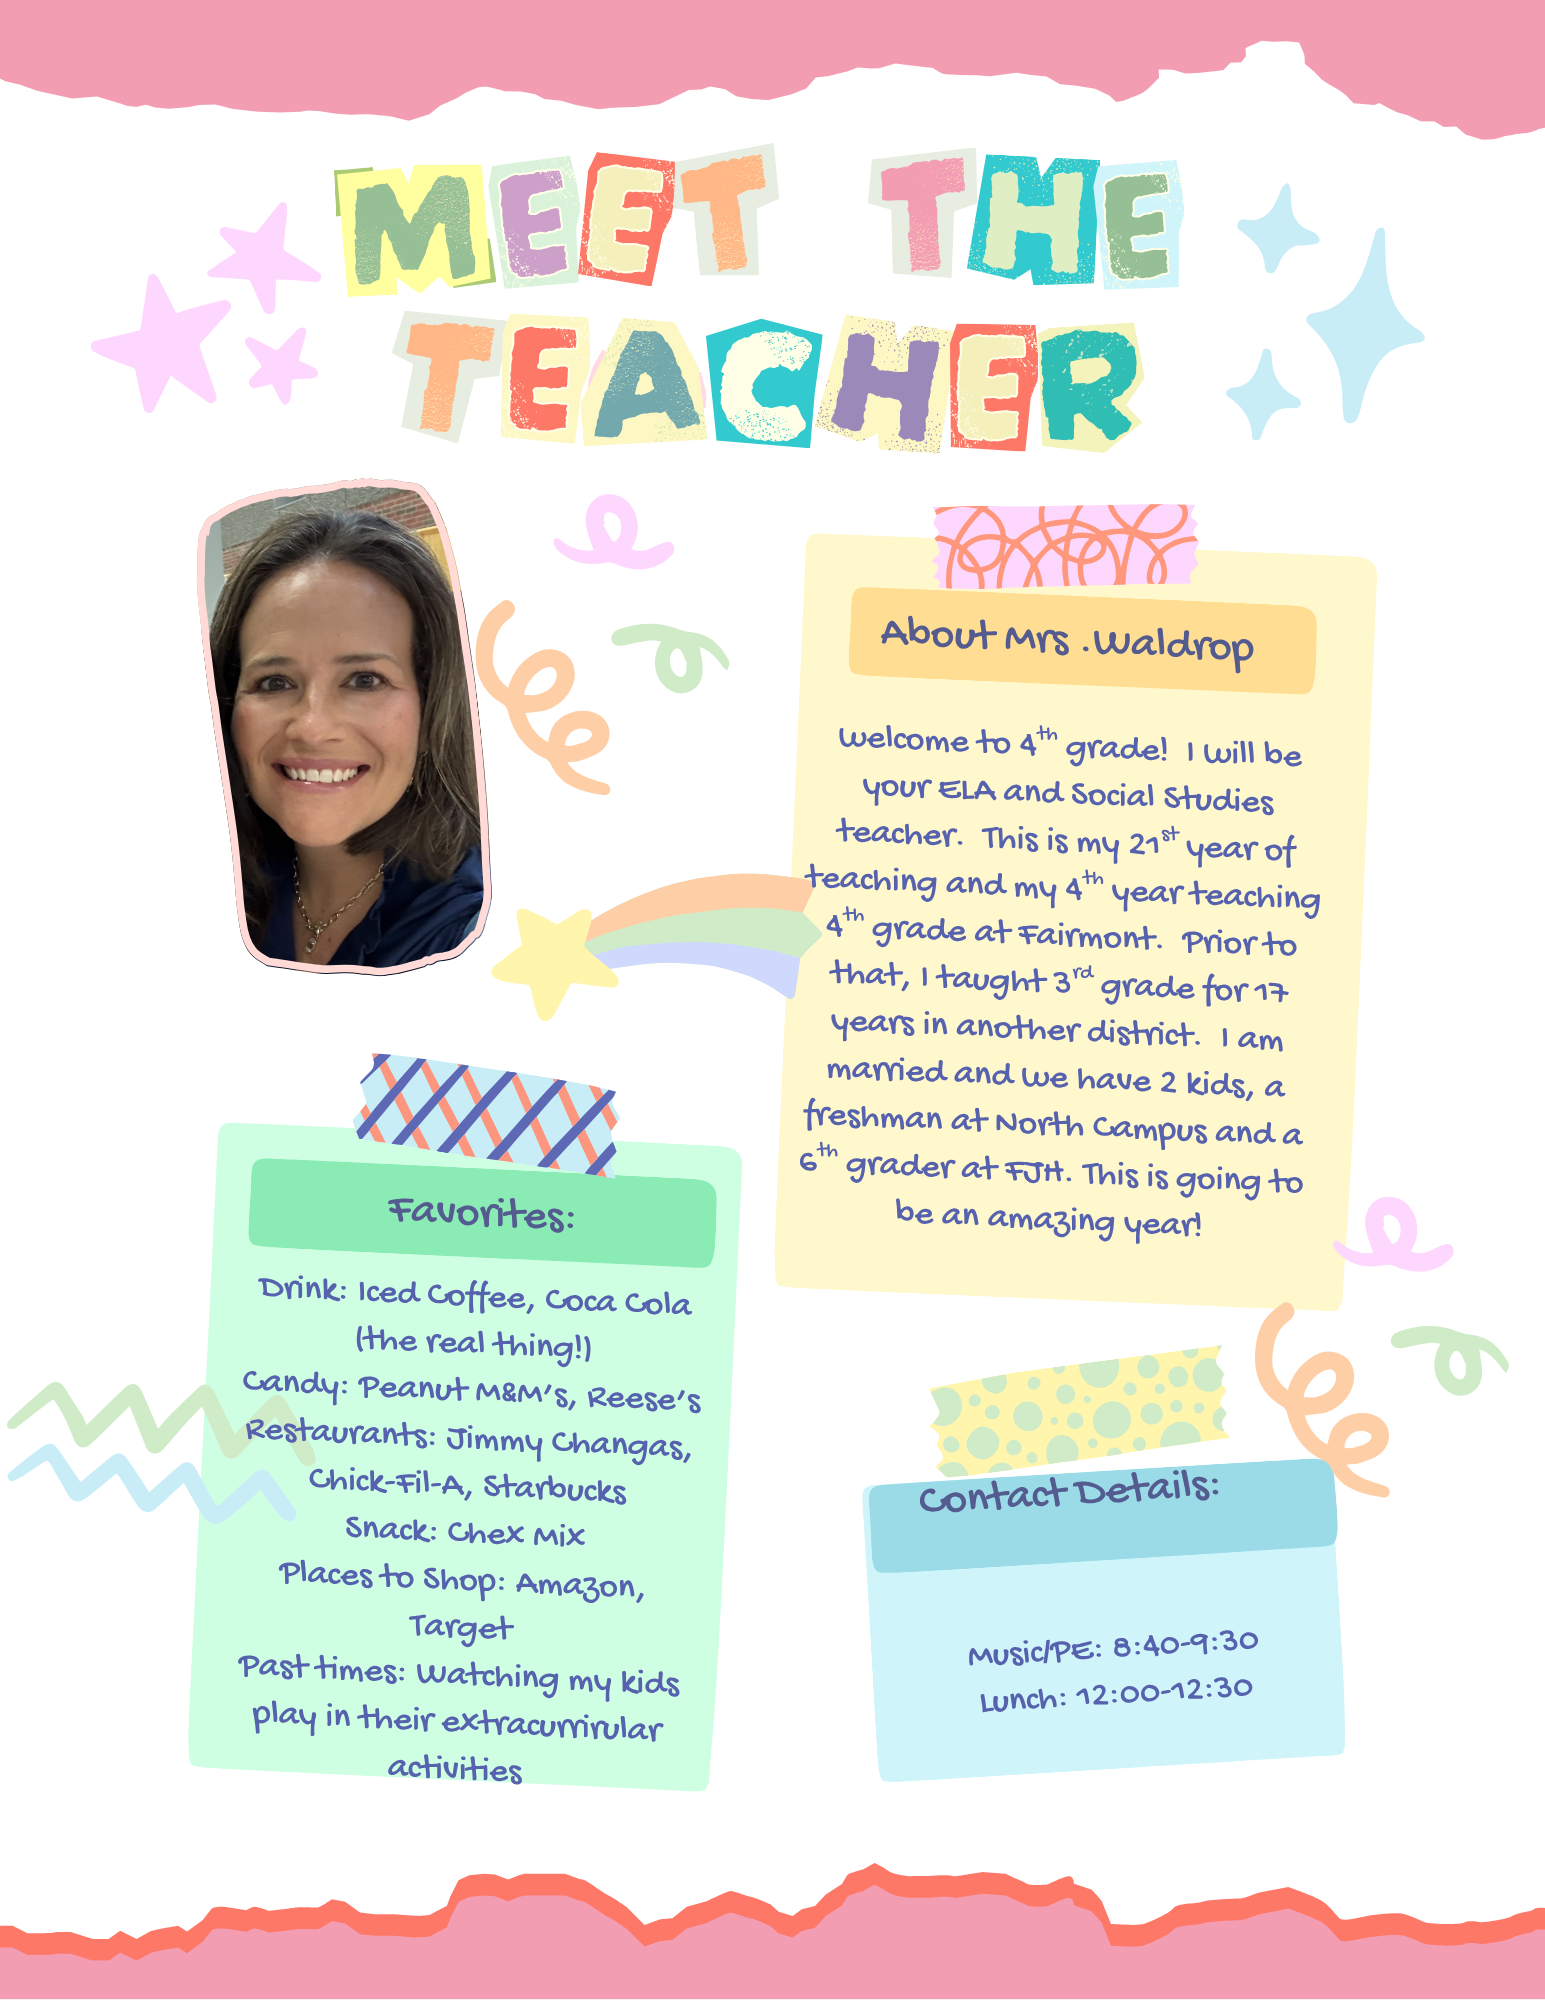 MEET THE
TEACHER
About Mrs .Waldrop
Welcome to 4th grade! I will be
your ELA and Social Studies
teacher. This is my 21st year of
teaching and my 4th year teaching
4th grade at Fairmont. Prior to
that, I taught 3rd grade for 17
years in another district. I am
married and we have 2 kids, a
freshman at North Campus and a
6th grader at FJH. This is going to
be an amazing year!
Favorites:
Drink: Iced Coffee, Coca Cola
(the real thing!)
Candy: Peanut M&M's, Reese's
Restaurants: Jimmy Changas,
Chick-Fil-A, Starbucks
Snack: Chex Mix
Places to Shop: Amazon,
Target
Past times: Watching my kids
play in their extracurrirular
activities
Contact Details:
Music/PE: 8:40-9:30
Lunch: 12:00-12:30